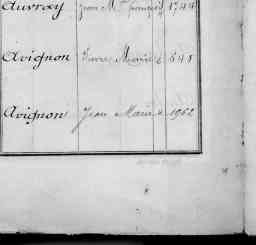 Auvray Jean M. françois 1744
Avignon Pierre Marie 648
Avignon Jean Marie 1962